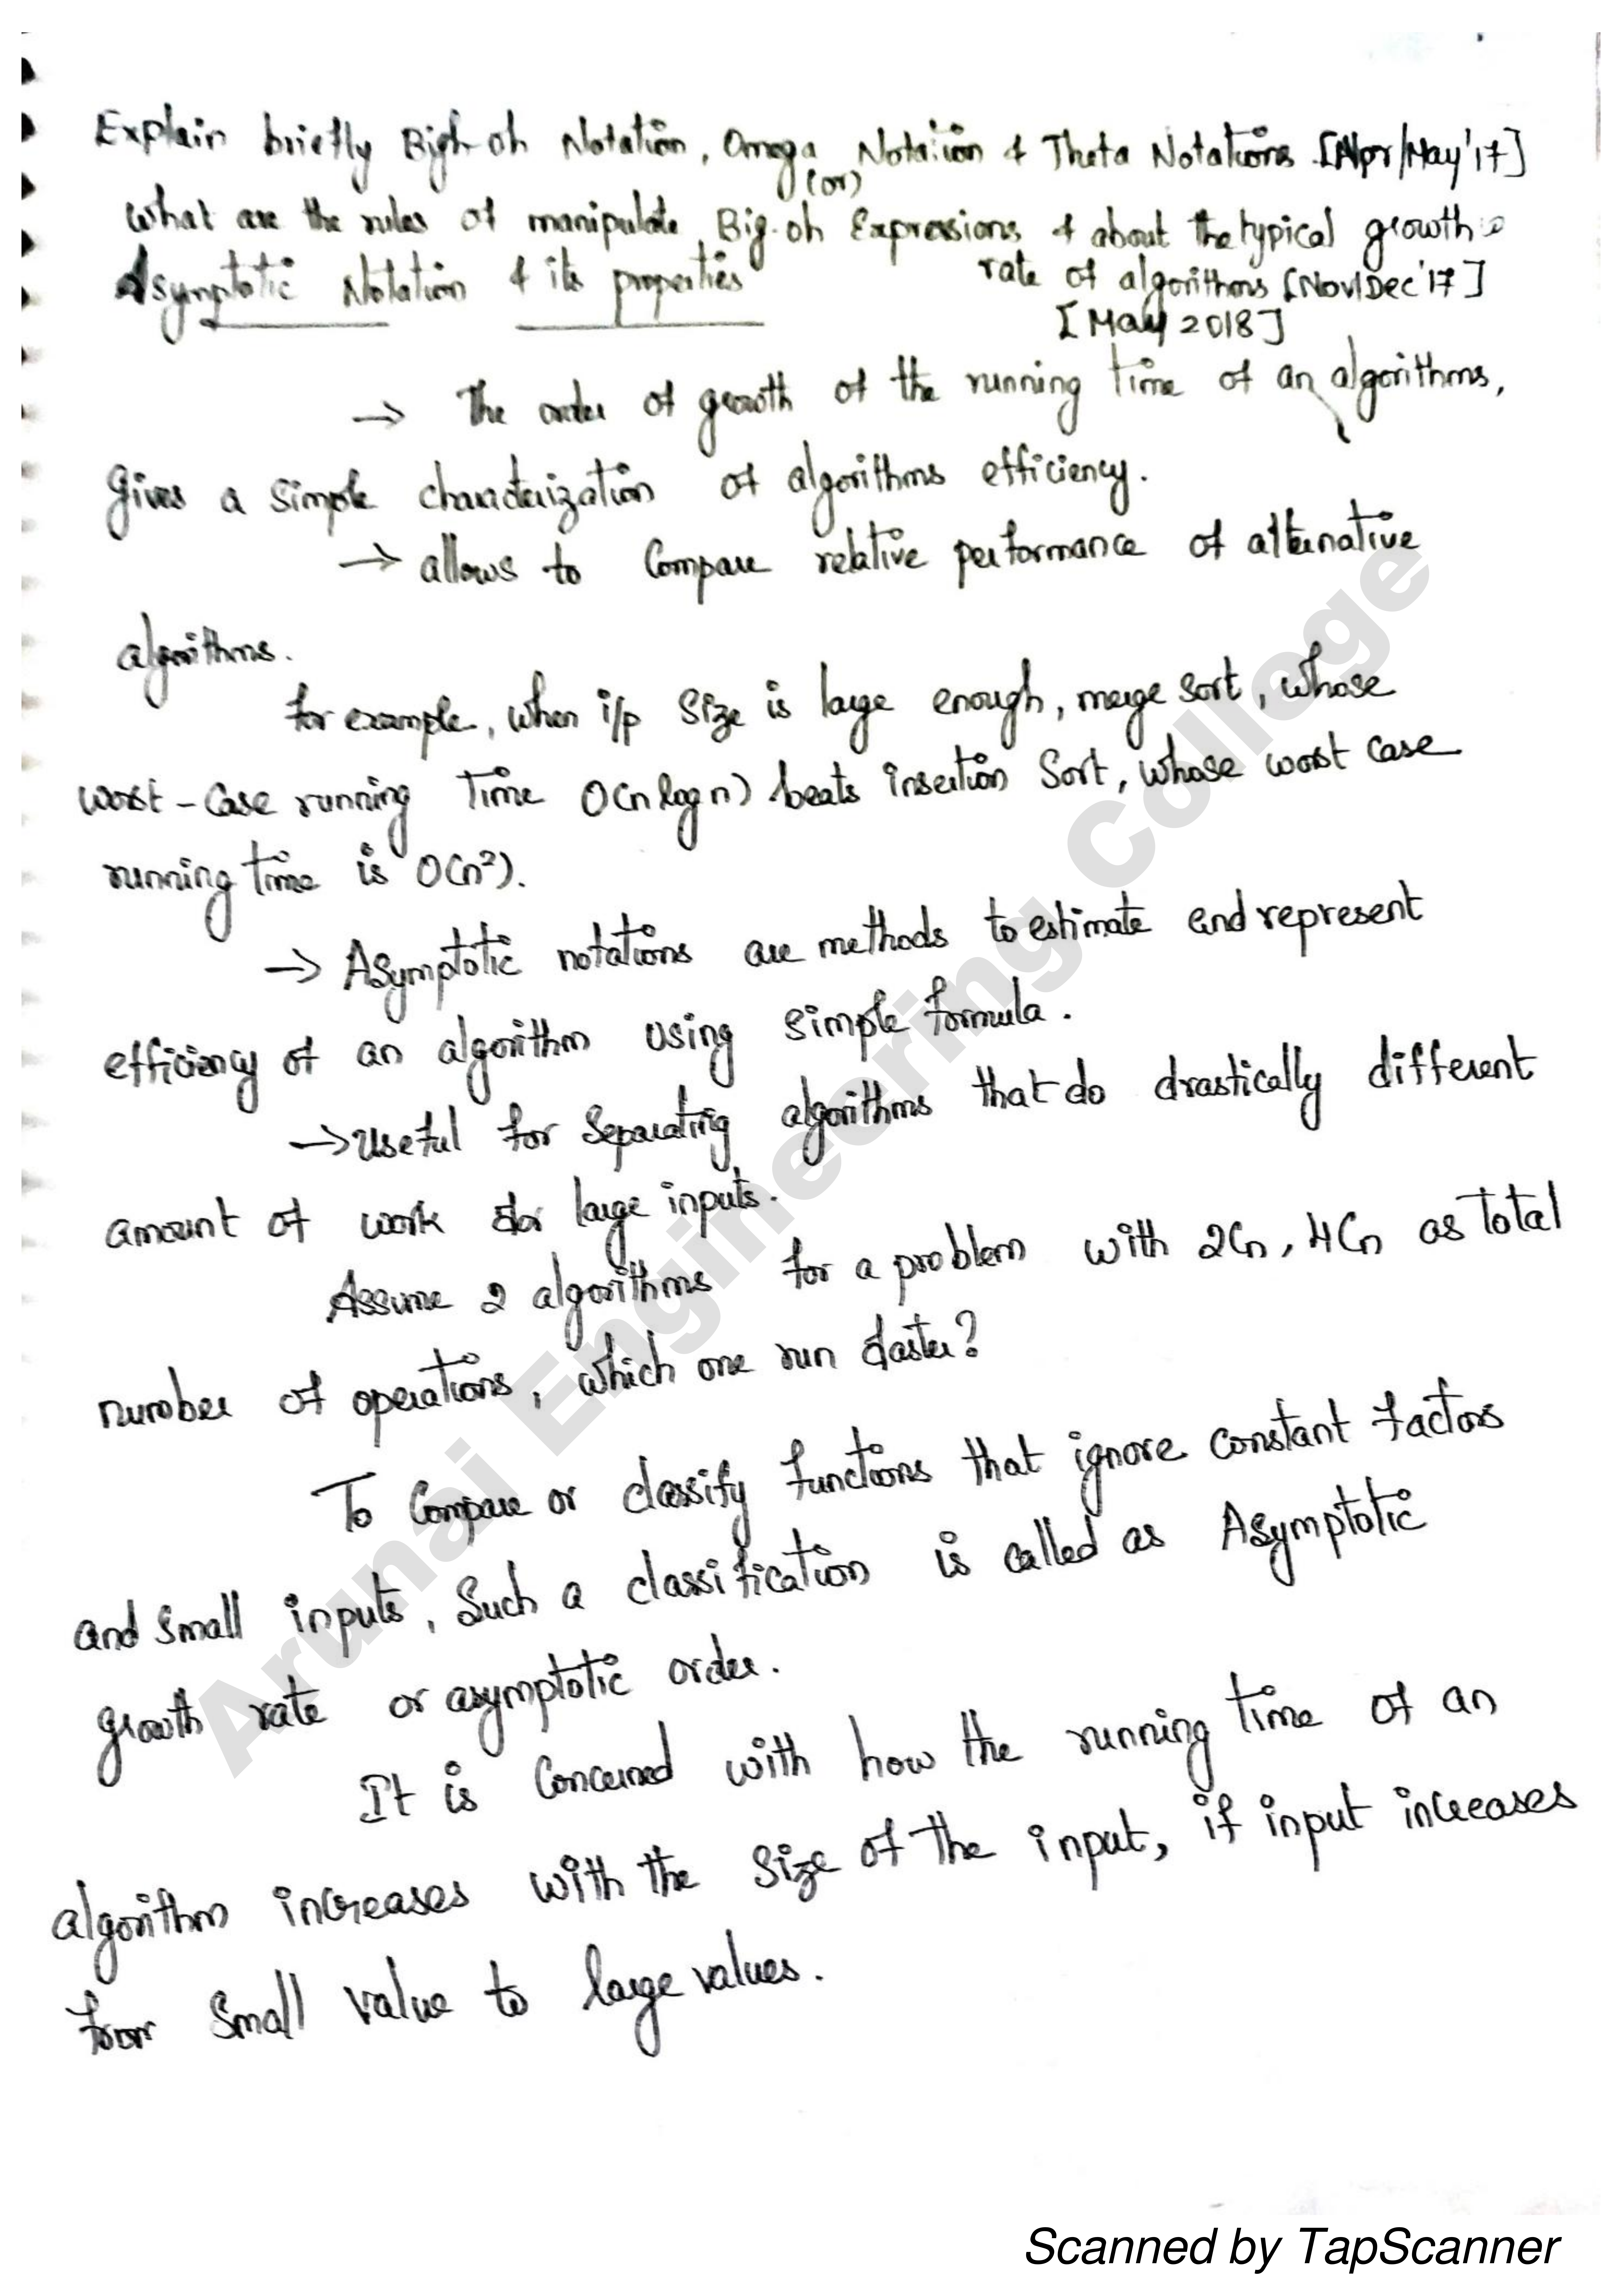 Explain briefly Bigh oh Notation, Omega Notation & Theta Notations [Apr/May'17]
(or)
What are the rules of manipulate Big-oh Expressions & about the typical growth
rate of algorithms [Nov/Dec'17]
Asymptotic Notation & its properties
[May 2018]
→ The order of growth of the running time of an algorithms,
gives a simple characterization of algorithms efficiency.
→ allows to compare relative performance of alternative
algorithms.
for example, when i/p size is large enough, merge sort, whose
worst-case running time O(n log n) beats insertion sort, whose worst case
running time is O(n²).
→ Asymptotic notations are methods to estimate and represent
efficiency of an algorithm using simple formula.
→ Useful for separating algorithms that do drastically different
amount of work for large inputs.
Assume 2 algorithms for a problem with 2Cn, 4Cn as total
number of operations, which one run faster?
To compare or classify functions that ignore constant factors
and small inputs, such a classification is called as Asymptotic
growth rate or asymptotic order.
It is concerned with how the running time of an
algorithm increases with the size of the input, if input increases
from small value to large values.
Arunai Engineering College
Scanned by TapScanner